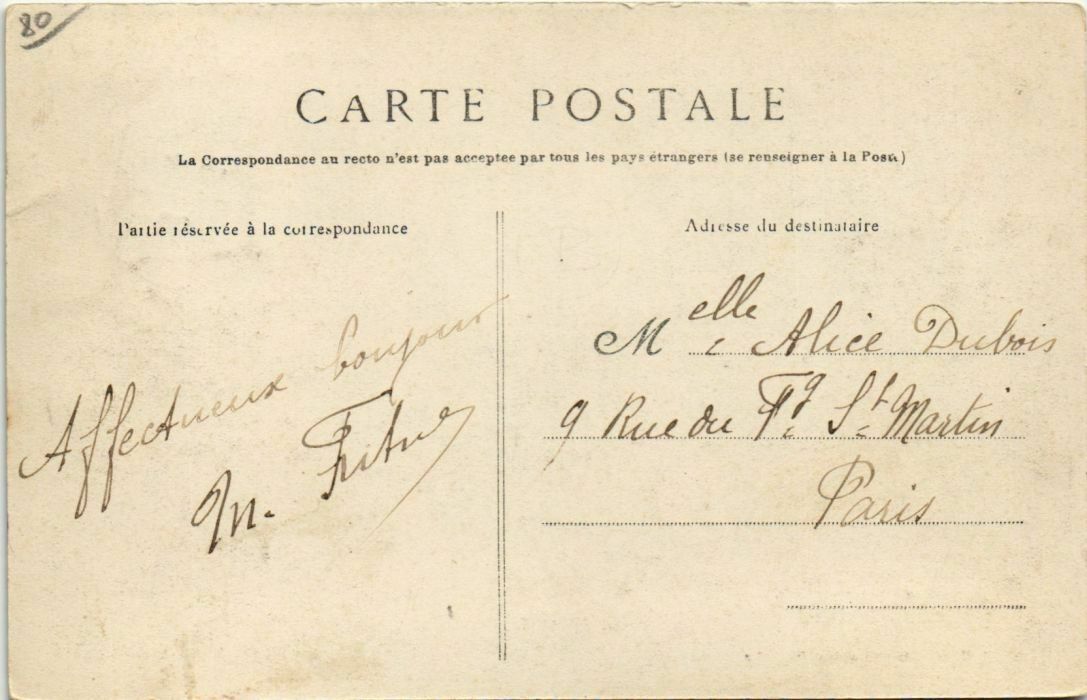 80
CARTE POSTALE
La Correspondance au recto n'est pas acceptee par tous les pays étrangers (se renseigner à la Poste)
Partie réservée à la correspondance
Affectueux bonjour
M.
Adresse du destinataire
Melle Alice Dubois
9 Rue du Fg St Martin
Paris